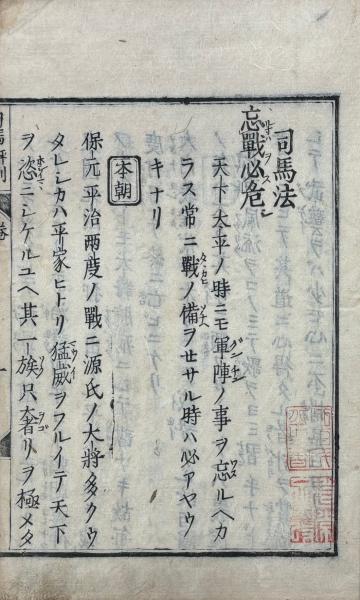 司馬法
忘戰必危
天下太平ノ時ニモ軍陣ノ事ヲ忘ルヘカ
ラス常ニ戰ノ備ヲセサル時ハ必アヤウ
キナリ
本朝
保元平治兩度ノ戰ニ源氏ノ大將多クウ
タレシカハ平家ヒトリ猛威ヲフルイテ天下
ヲ恣ニシケルユヘ其一族尺奢リヲ極メタ